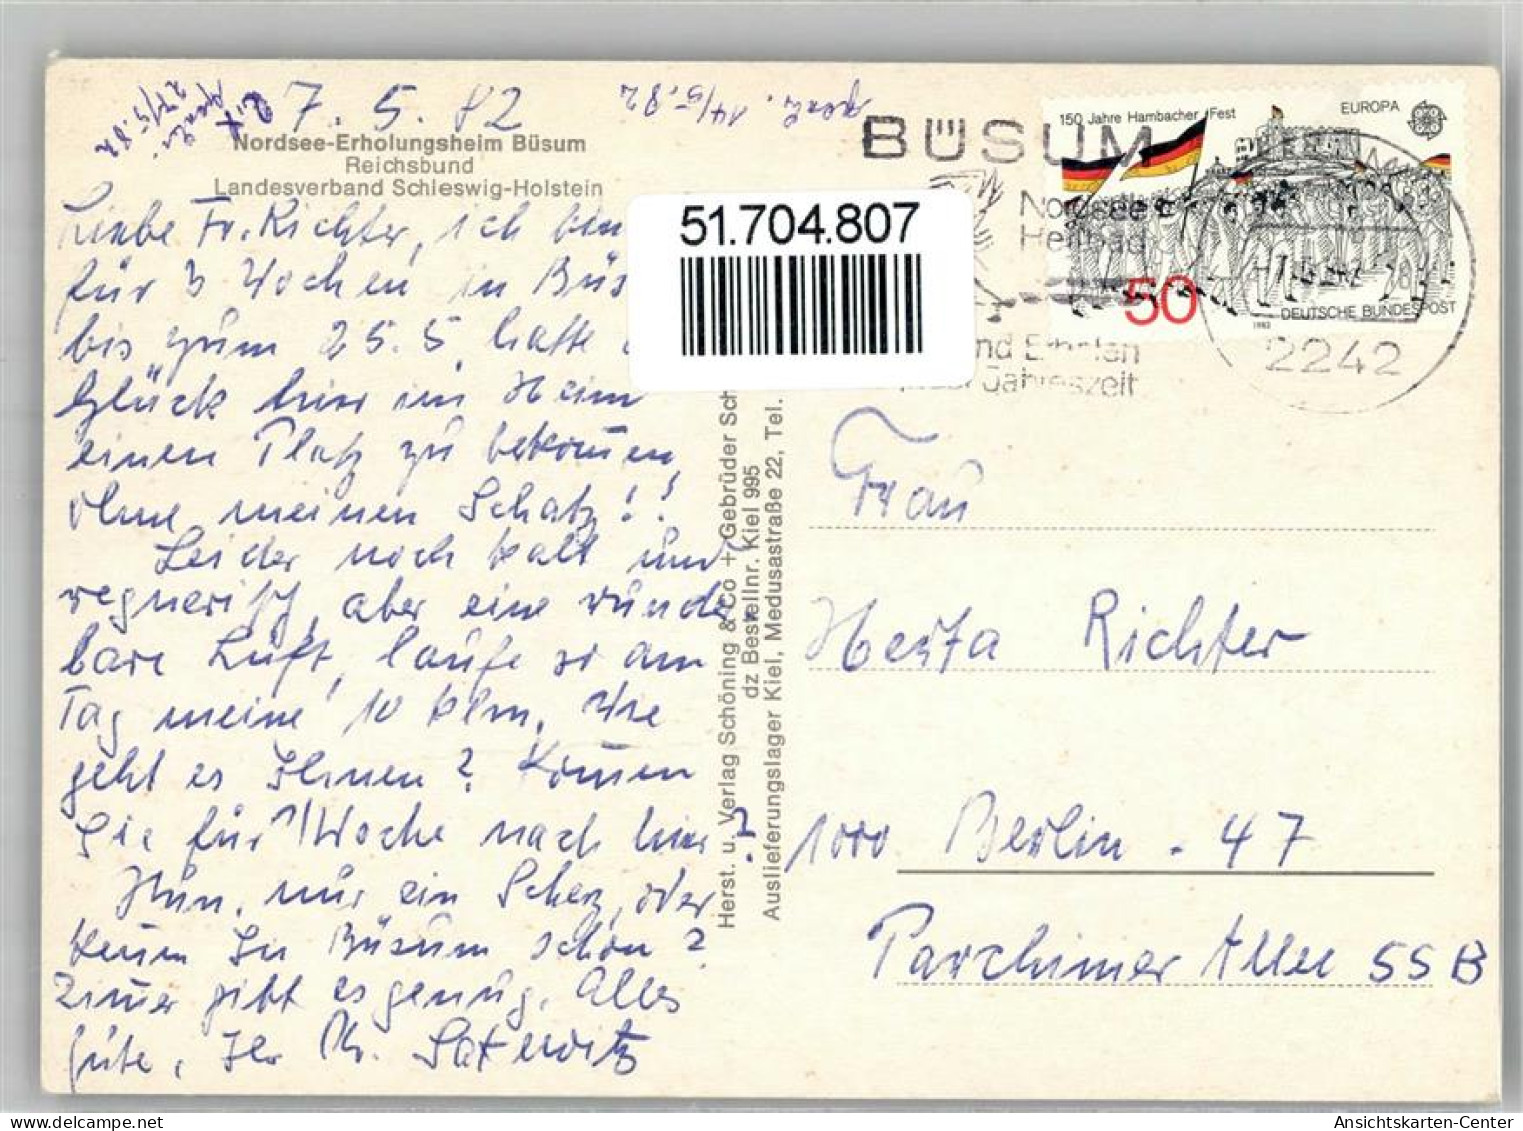 7. 5. 82
14/5. 82
27/5. 82
Nordsee-Erholungsheim Büsum
Reichsbund
Landesverband Schleswig-Holstein
Liebe Fr. Richter, ich bin
für 3 Wochen in Büs
bis zum 25. 5. hatte
Glück hier im Heim
einen Platz zu bekommen,
ohne meinen Schatz!!
Leider noch kalt und
regnerisch, aber eine wunder
bare Luft, laufe so am
Tag meine 10 klm. Wie
geht es Ihnen? Kommen
Sie für 1 Woche nach hier?
Nun, nur ein Scherz, oder
kenn Sie Büsum schon?
Zimmer gibt es genug. Alles
Gute, Ihr
51.704.807
Herst. u. Verlag Schöning & Co + Gebrüder Sch
dz Bestellnr. Kiel 995
Auslieferungslager Kiel, Medusastraße 22, Tel.
BÜSUM
Nordsee
Heilbad
nd Erholen
Jahreszeit
2242
150 Jahre Hambacher Fest
EUROPA
50
1982
DEUTSCHE BUNDESPOST
Frau
Herta Richter
1000 Berlin - 47
Parchimer Allee 55 B
Ansichtskarten-Center